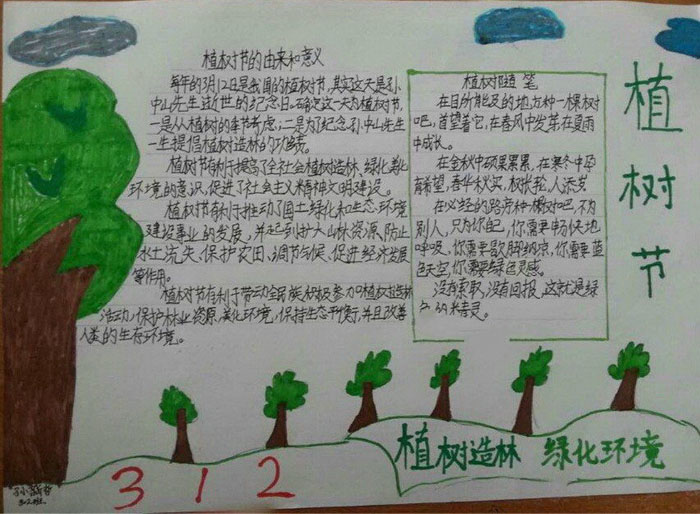 植树节的由来和意义
每年的3月12日是我国的植树节,其实这天是孙
中山先生逝世的纪念日。确定这一天为植树节,
一是从植树的季节考虑;二是为了纪念孙中山先生
一生提倡植树造林的功绩。
植树节有利于提高了全社会植树造林、绿化美化
环境的意识,促进了社会主义精神文明建设。
植树节有利于推动了国土绿化和生态环境
建设事业的发展,并起到扩大山林资源、防止
水土流失、保护农田、调节气候、促进经济发展
等作用。
植树节有利于带动全民族积极参加植树造林
活动,保护林业资源,美化环境,保持生态平衡,并且改善
人类的生存环境。
植树随笔
在目所能及的地方种一棵树
吧,首望着它,在春风中发芽在夏雨
中成长。
在金秋中硕果累累,在寒冬中孕
育希望,春华秋实,树长轮,人添岁
在必经的路旁种一棵树吧,不为
别人,只为你自己,你需要畅快地
呼吸,你需要歇脚纳凉,你需要蓝
色天空,你需要绿色灵感。
没有索取,没有回报,这就是绿
色的精灵。
植树节
植树造林 绿化环境
312